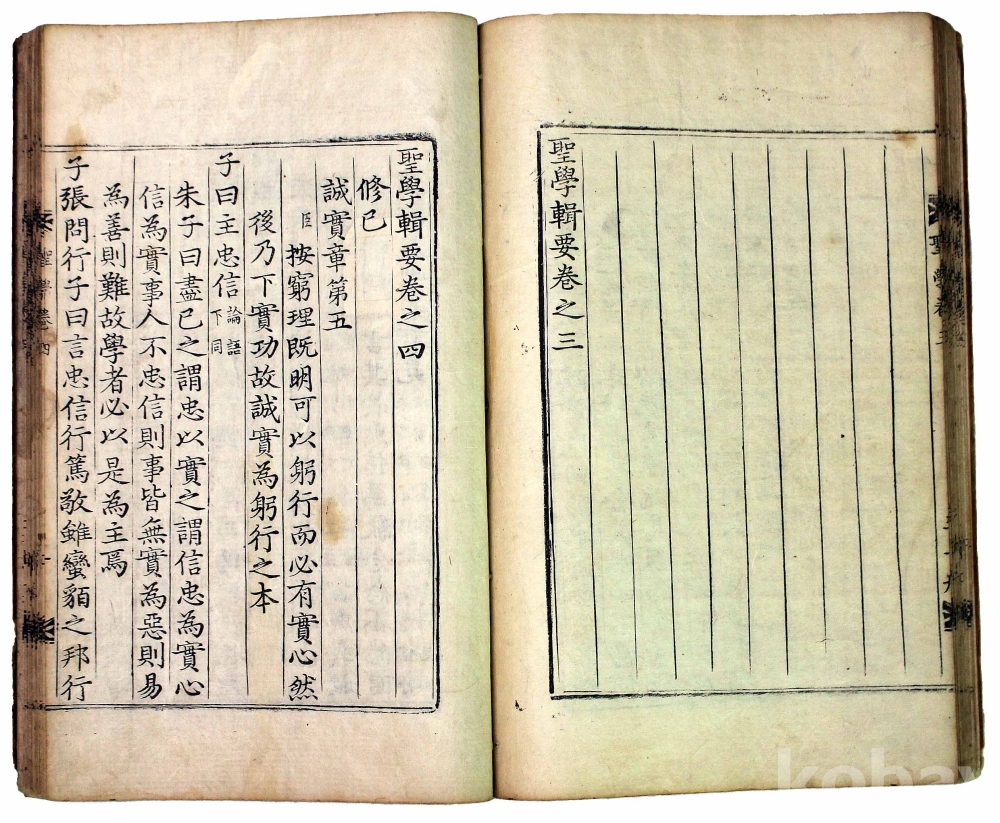 聖學輯要卷之三
聖學輯要卷之四
修已
誠實章第五
臣按窮理既明可以躬行而必有實心然
後乃下實功故誠實為躬行之本
子曰主忠信論語下同
朱子曰盡已之謂忠以實之謂信忠為實心
信為實事人不忠信則事皆無實為惡則易
為善則難故學者必以是為主焉
子張問行子曰言忠信行篤敬雖蠻貊之邦行
聖學卷四